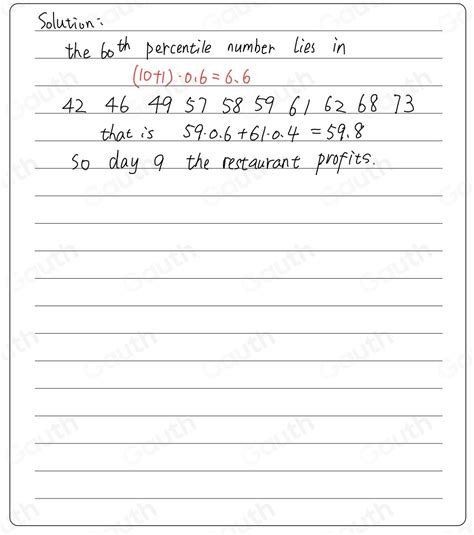 Solution:
the 60th percentile number lies in
(10+1)·0.6=6.6
42 46 49 57 58 59 61 62 68 73
that is 59·0.6+61·0.4 =59.8
so day 9 the restaurant profits.